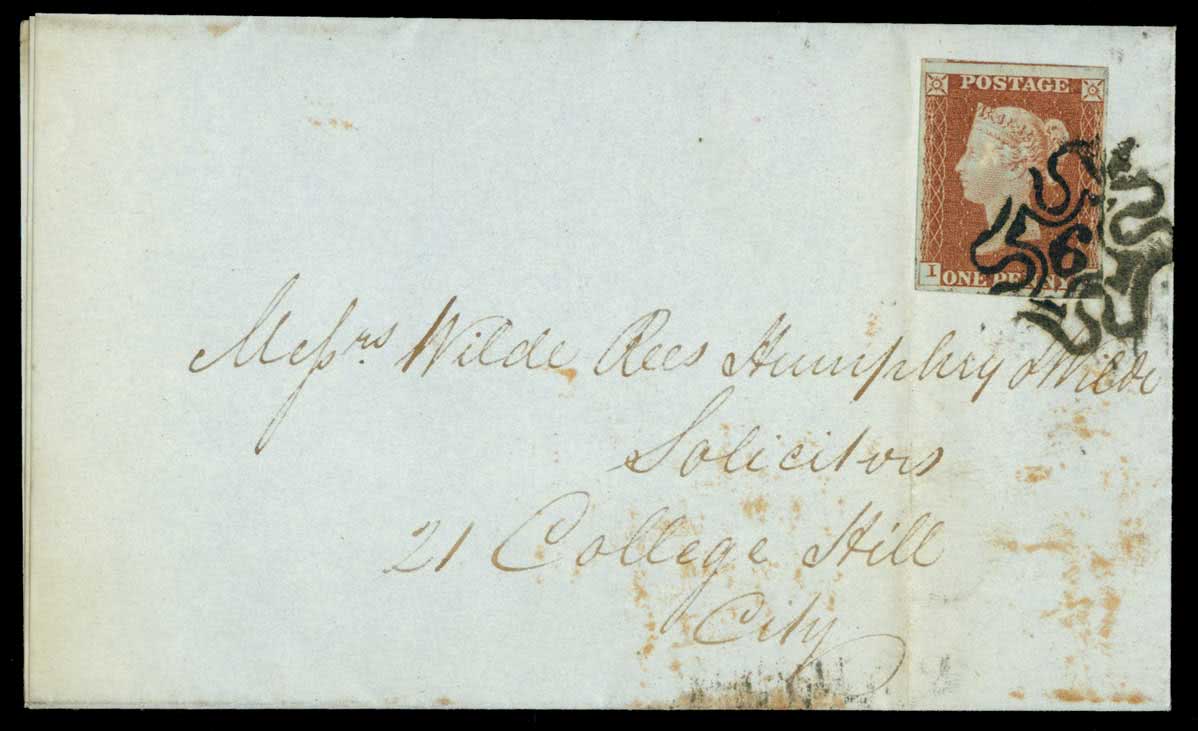 POSTAGE
6
I
ONE PENNY
Messrs Wilde Rees Humphry & Wilde
Solicitors
21 College Hill
City